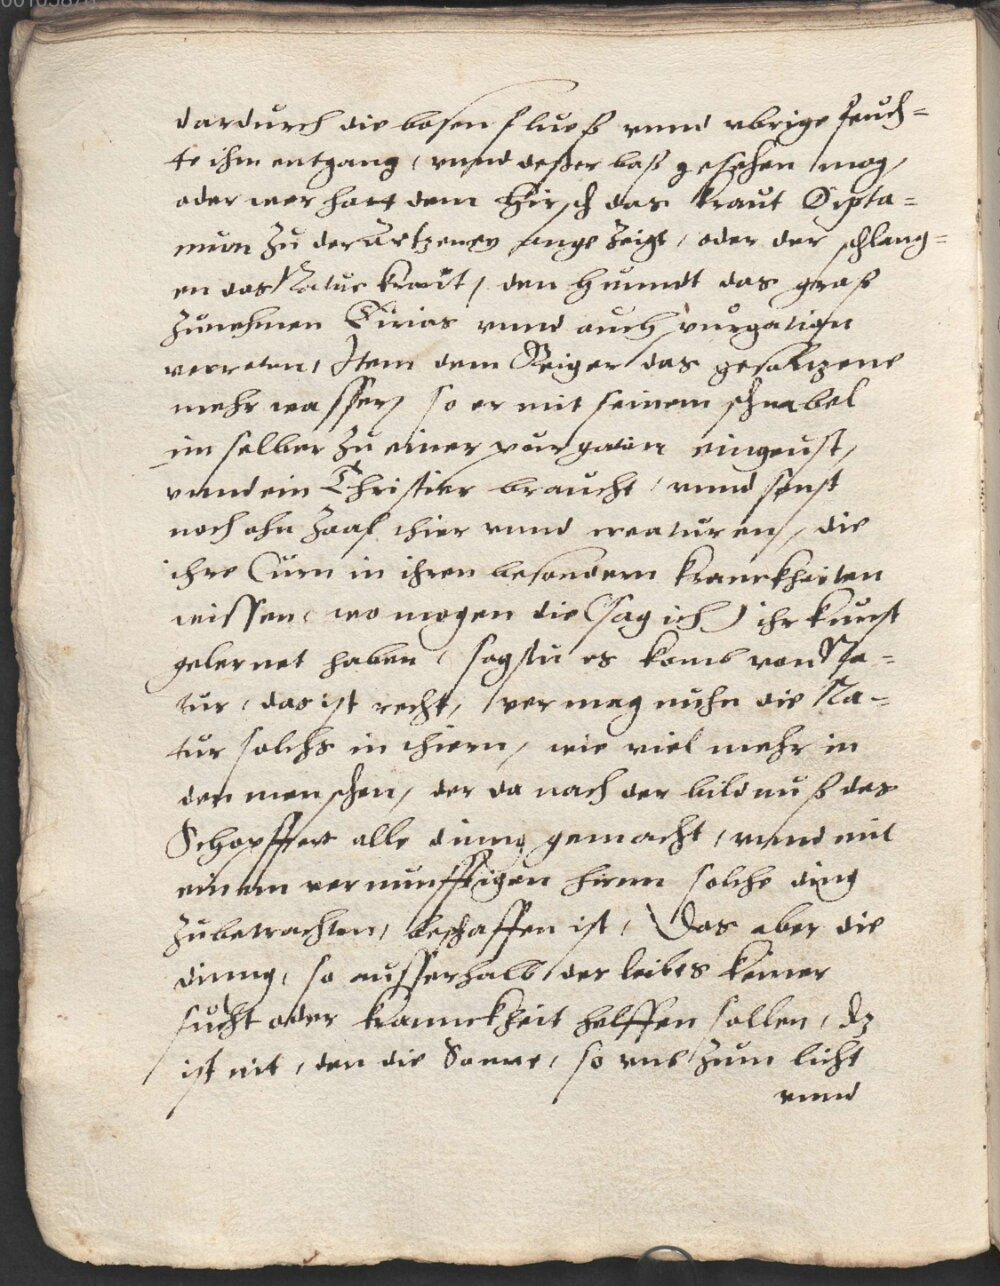 dardurch die bosen flueß vnnd vbrige feuch=
te ihm entgang, vnnd deßer baß gesehen mog,
oder wer hatt dem Hirsch das kraut Dipta=
mum zu der Artzeney ange zeigt, oder der schlang=
en das Natur kraut, den hunndt das graß
zunehmen Tirias vnnd auch purgation
verreten, Item dem Reiger das gesaltzene
mehr wasser, so er mit seinem schnabel
im selber zu einer purgation eingeust,
vnnd ein Christier braucht, vnnd sonst
noch ohn Zaal thier vnnd creaturen, die
ihre Curn in ihren besondern kranckheiten
wissen, wo mogen die (sag ich) ihr kunst
gelernet haben, sagstu es komb von Na=
tur, das ist recht, vermag nuhn die Na=
tur solchs in thiern, wie viel mehr in
den menschen, der da nach der bildnuß des
Schopffers alle dinng gemacht, vnnd mit
einem vernunfftigen hirnn solche ding
zubetrachten, beschaffen ist, Das aber die
dinng, so ausserhalb des leibes keiner
sucht oder kranckheit helffen sollen, dz
ist nit, den die Sonne, so vnß zum licht
vnnd